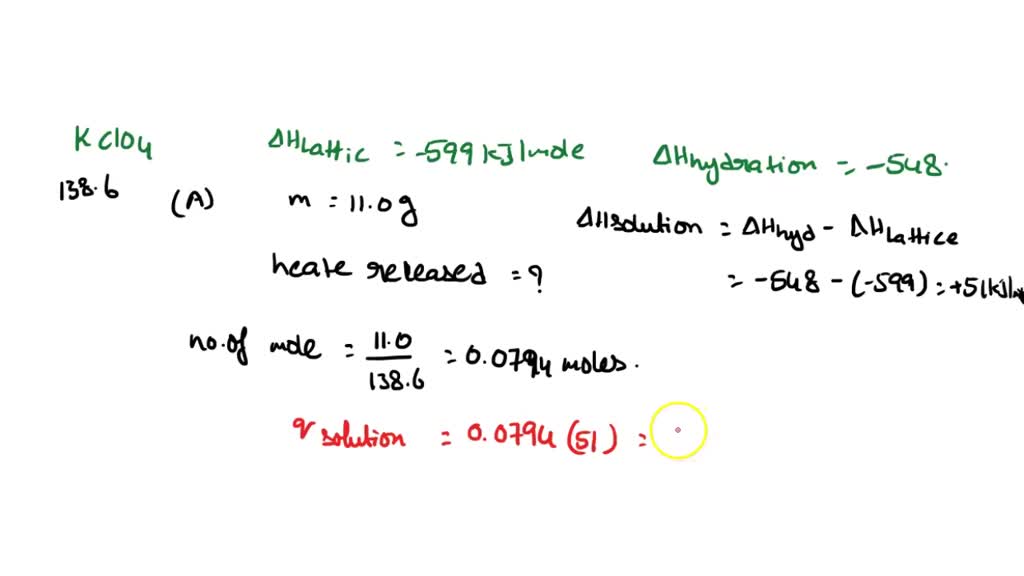 KClO4 ΔHLattic = -599 kJ/mole ΔHhydration = -548.
138.6 (A) m = 11.0g ΔHsolution = ΔHhyd - ΔHLattice
heate released = ? = -548 - (-599) = +51kJ/m
no.of mole = 11.0/138.6 = 0.0794 moles.
q solution = 0.0794 (51) =